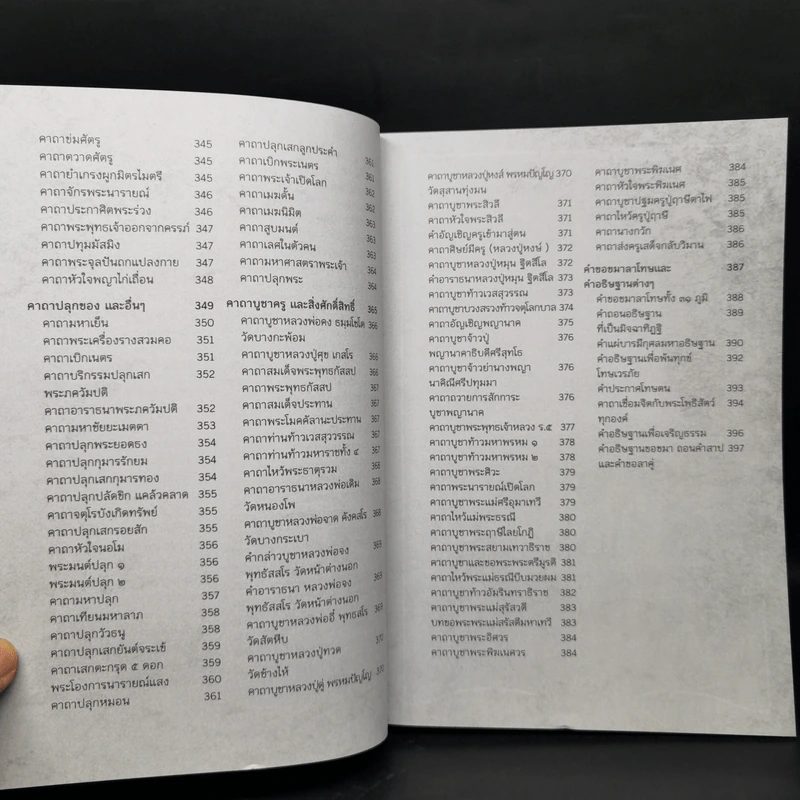 คาถาข่มศัตรู 345
คาถาตวาดศัตรู 345
คาถายำเกรงผูกมิตรไมตรี 345
คาถาจักรพระนารายณ์ 346
คาถาประกาศิตพระร่วง 346
คาถาพระพุทธเจ้าออกจากครรภ์ 347
คาถาปทุมมัสมิง 347
คาถาพระจุลปันถกแปลงกาย 347
คาถาหัวใจพญาไก่เถื่อน 348
คาถาปลุกของ และอื่นๆ 349
คาถามหาเย็น 350
คาถาพระเครื่องรางสวมคอ 351
คาถาเบิกเนตร 351
คาถาบริกรรมปลุกเสก 352
พระภควัมปติ
คาถาอาราธนาพระภควัมปติ 352
คาถามหาชัยยะเมตตา 353
คาถาปลุกพระยอดธง 354
คาถาปลุกกุมารรักยม 354
คาถาปลุกเสกกุมารทอง 354
คาถาปลุกปลัดขิก แคล้วคลาด 355
คาถาจตุโรบังเกิดทรัพย์ 355
คาถาปลุกเสกรอยสัก 355
คาถาหัวใจนอโม 356
พระมนต์ปลุก ๑ 356
พระมนต์ปลุก ๒ 356
คาถามหาปลุก 357
คาถาเทียนมหาลาภ 358
คาถาปลุกวัวธนู 358
คาถาปลุกเสกยันต์จระเข้ 359
คาถาเสกตะกรุด ๕ ดอก 359
พระโองการนารายณ์แสง 360
คาถาปลุกหมอน 361
คาถาปลุกเสกลูกประคำ 361
คาถาเบิกพระเนตร 361
คาถาพระเจ้าเปิดโลก 361
คาถาเมฆดั้น 362
คาถาเมฆนิมิต 362
คาถาสูบมนต์ 363
คาถาเลศในตัวคน 363
คาถามหาศาสตราพระเจ้า 364
คาถาปลุกพระ 364
คาถาบูชาครู และสิ่งศักดิ์สิทธิ์ 365
คาถาบูชาหลวงพ่อคง ธมฺมโชโต 366
วัดบางกะพ้อม
คาถาบูชาหลวงปู่ศุข เกสโร 366
คาถาสมเด็จพระพุทธกัสสป 366
คาถาพระพุทธกัสสป 367
คาถาสมเด็จประทาน 367
คาถาพระโมคคัลานะประทาน 367
คาถาท่านท้าวเวสสุวรรณ 367
คาถาท่านท้าวมหาราชทั้ง ๔ 368
คาถาไหว้พระธาตุรวม 368
คาถาอาราธนาหลวงพ่อเดิม 368
วัดหนองโพ
คาถาบูชาหลวงพ่อจาด คังคสโร 368
วัดบางกระเบา
คำกล่าวบูชาหลวงพ่อจง 369
พุทธัสสโร วัดหน้าต่างนอก
คำอาราธนา หลวงพ่อจง 369
พุทธัสสโร วัดหน้าต่างนอก
คาถาบูชาหลวงพ่ออี๋ พุทธสโร 369
วัดสัตหีบ
คาถาบูชาหลวงปู่ทวด 370
วัดช้างให้
คาถาบูชาหลวงปู่ดู่ พรหมปัญโญ 370
คาถาบูชาหลวงปู่หงส์ พรหมปัญโญ 370
วัดสุสานทุ่งมน
คาถาบูชาพระสิวลี 371
คาถาหัวใจพระสิวลี 371
คำอัญเชิญครูเข้ามาสู่ตน 371
คาถาศิษย์มีครู (หลวงปู่หงษ์ ) 372
คาถาบูชาหลวงปู่หมุน ฐิตสีโล 372
คำอาราธนาหลวงปู่หมุน ฐิตสีโล 373
คาถาบูชาท้าวเวสสุวรรณ 373
คาถาบูชาบวงสรวงท้าวจตุโลกบาล 374
คาถาอัญเชิญพญานาค 375
คาถาบูชาจ้าวปู่ 376
พญานาคาธิบดีศรีสุทโธ
คาถาบูชาจ้าวย่านางพญา 376
นาคิณีศรีปทุมมา
คาถาถวายการสักการะ 376
บูชาพญานาค
คาถาบูชาพระพุทธเจ้าหลวง ร.๕ 377
คาถาบูชาท้าวมหาพรหม ๑ 378
คาถาบูชาท้าวมหาพรหม ๒ 378
คาถาบูชาพระศิวะ 379
คาถาพระนารายณ์เปิดโลก 379
คาถาบูชาพระแม่ศรีอุมาเทวี 379
คาถาไหว้แม่พระธรณี 380
คาถาบูชาพระฤาษีไลยโกฏิ 380
คาถาบูชาพระสยามเทวาธิราช 380
คาถาบูชาและขอพรพระตรีมูรติ 381
คาถาไหว้พระแม่ธรณีบีบมวยผม 381
คาถาบูชาท้าวอัมรินทราธิราช 382
คาถาบูชาพระแม่สุรัสวดี 383
บทขอพระพระแม่สรัสตีมหาเทวี 383
คาถาบูชาพระอิศวร 384
คาถาบูชาพระพิฆเนศวร 384
คาถาบูชาพระพิฆเนศ 384
คาถาหัวใจพระพิฆเนศ 385
คาถาบูชาปฐมครูปู่ฤาษีตาไฟ 385
คาถาไหว้ครูปู่ฤาษี 385
คาถานางกวัก 386
คาถาส่งครูเสด็จกลับวิมาน 386
คำขอขมาลาโทษและ 387
คำอธิษฐานต่างๆ
คำขอขมาลาโทษทั้ง ๓๑ ภูมิ 388
คำถอนอธิษฐาน 389
ที่เป็นมิจฉาทิฏฐิ
คำแผ่บารมีกุศลมหาอธิษฐาน 390
คำอธิษฐานเพื่อพ้นทุกข์ 392
โทษเวรภัย
คำประกาศโทษตน 393
คาถาเชื่อมจิตกับพระโพธิสัตว์ 394
ทุกองค์
คำอธิษฐานเพื่อเจริญธรรม 396
คำอธิษฐานขอขมา ถอนคำสาป 397
และคำขอลาคู่